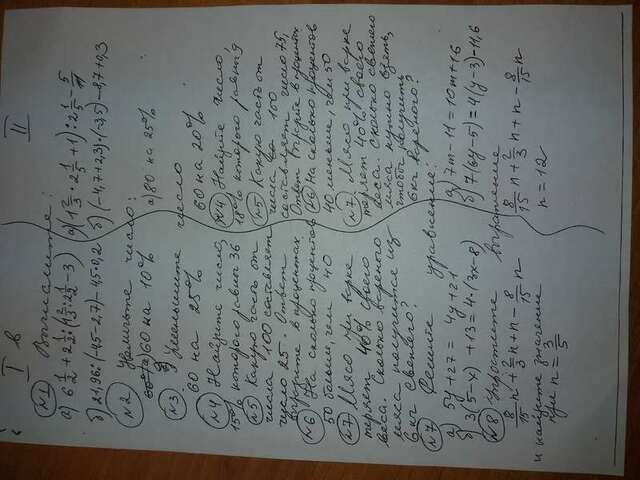 I в II
№1 Вычислите:
а) 6 1/2 + 2 1/2 : (1 2/3 : 2 1/2 - 3) а) (1 2/3 : 2 1/2 + 1) : 2 1/5 - 5/11
б) 2,96 : (-4,5-2,7) - 4,5·0,2 б) (-4,7+2,3) · (-3,5) - 8,7+0,3
№2 Увеличьте число:
а) 60 на 10% а) 80 на 25%
№3 Уменьшите число
60 на 25% 60 на 20%
№4 Найдите число,
15% которого равны 36
№5 Какую часть от
числа 100 составляет
число 25. Ответ
выразите в процентах
№6 На сколько процентов
50 больше, чем 40
№7 Мясо при варке
теряет 40% своего
веса. Сколько вареного
мяса получится из
6кг свежего?
№4 Найдите число,
18% которого равны 9
№5 Какую часть от
числа 100
составляет число 75,
Ответ выразите в процентах
№6 На сколько процентов
40 меньше, чем 50
№7 Мясо при варке
теряет 40% своего
веса. Сколько свежего
мяса нужно взять,
чтобы получить
6кг вареного?
№7 Решите уравнение:
а) 5y + 27 = 4y + 21 а) 7m - 11 = 10m + 16
б) 3(5-x) + 13 = 4·(3x-8) б) 7(6y-5) = 4(y-3) + 11,6
№8 Упростите выражение
8/15 n + 2/3 n + n - 8/15 n 8/15 n + 2/3 n + n - 8/15 n
и найдите значение
при n = 3/5 n = 12